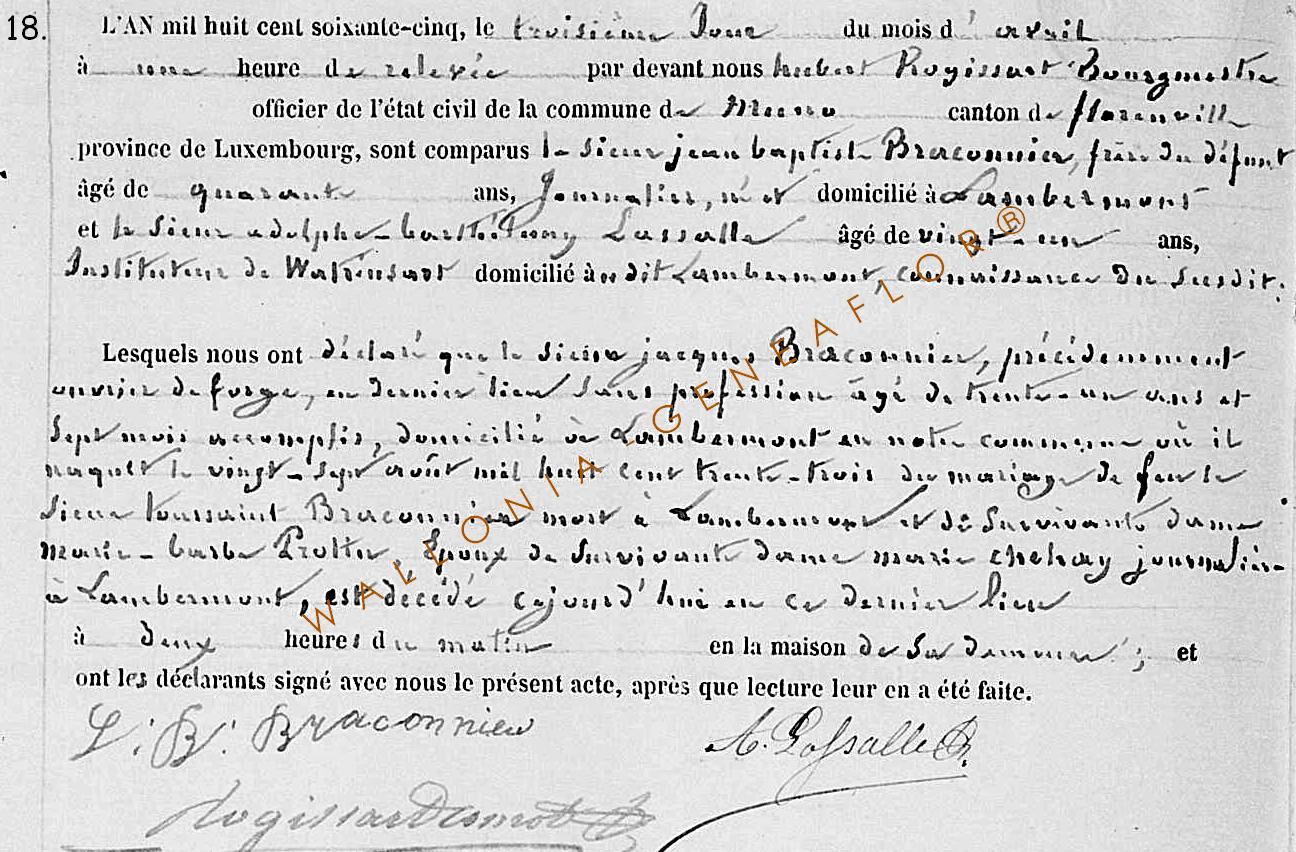 18.
L'AN mil huit cent soixante-cinq, le troisième Jour du mois d'avril
à une heure de relevée par devant nous hubert Rogissart Bourgmestre
officier de l'état civil de la commune de Muno canton de florenville
province de Luxembourg, sont comparus le Sieur jean baptiste Braconnier, frère du défunt
âgé de quarante ans, Journalier, né et domicilié à Lambermont
et le Sieur adolphe-barthélemy Lassalle âgé de vingt-un ans,
Instituteur de Watrinsart domicilié à dit Lambermont, connaissance du susdit.
Lesquels nous ont déclaré que le Sieur jacques Braconnier, précédemment
ouvrier de forge, en dernier lieu sans profession âgé de trente-un ans et
Sept mois accomplis, domicilié à Lambermont en notre commune où il
naquit le vingt-sept août mil huit cent trente-trois du mariage de feu le
Sieur toussaint Braconnier mort à Lambermont et de Survivante dame
marie-barbe Protin, Epoux de Survivante dame marie chehay journalière
à Lambermont, est décédé cejourd'hui en ce dernier lieu
à deux heures du matin en la maison de Sa demeure ; et
ont les déclarants signé avec nous le présent acte, après que lecture leur en a été faite.
J. B. Braconnier A. Lassalle
Rogissart
WALLONIA GENEAFLOR®